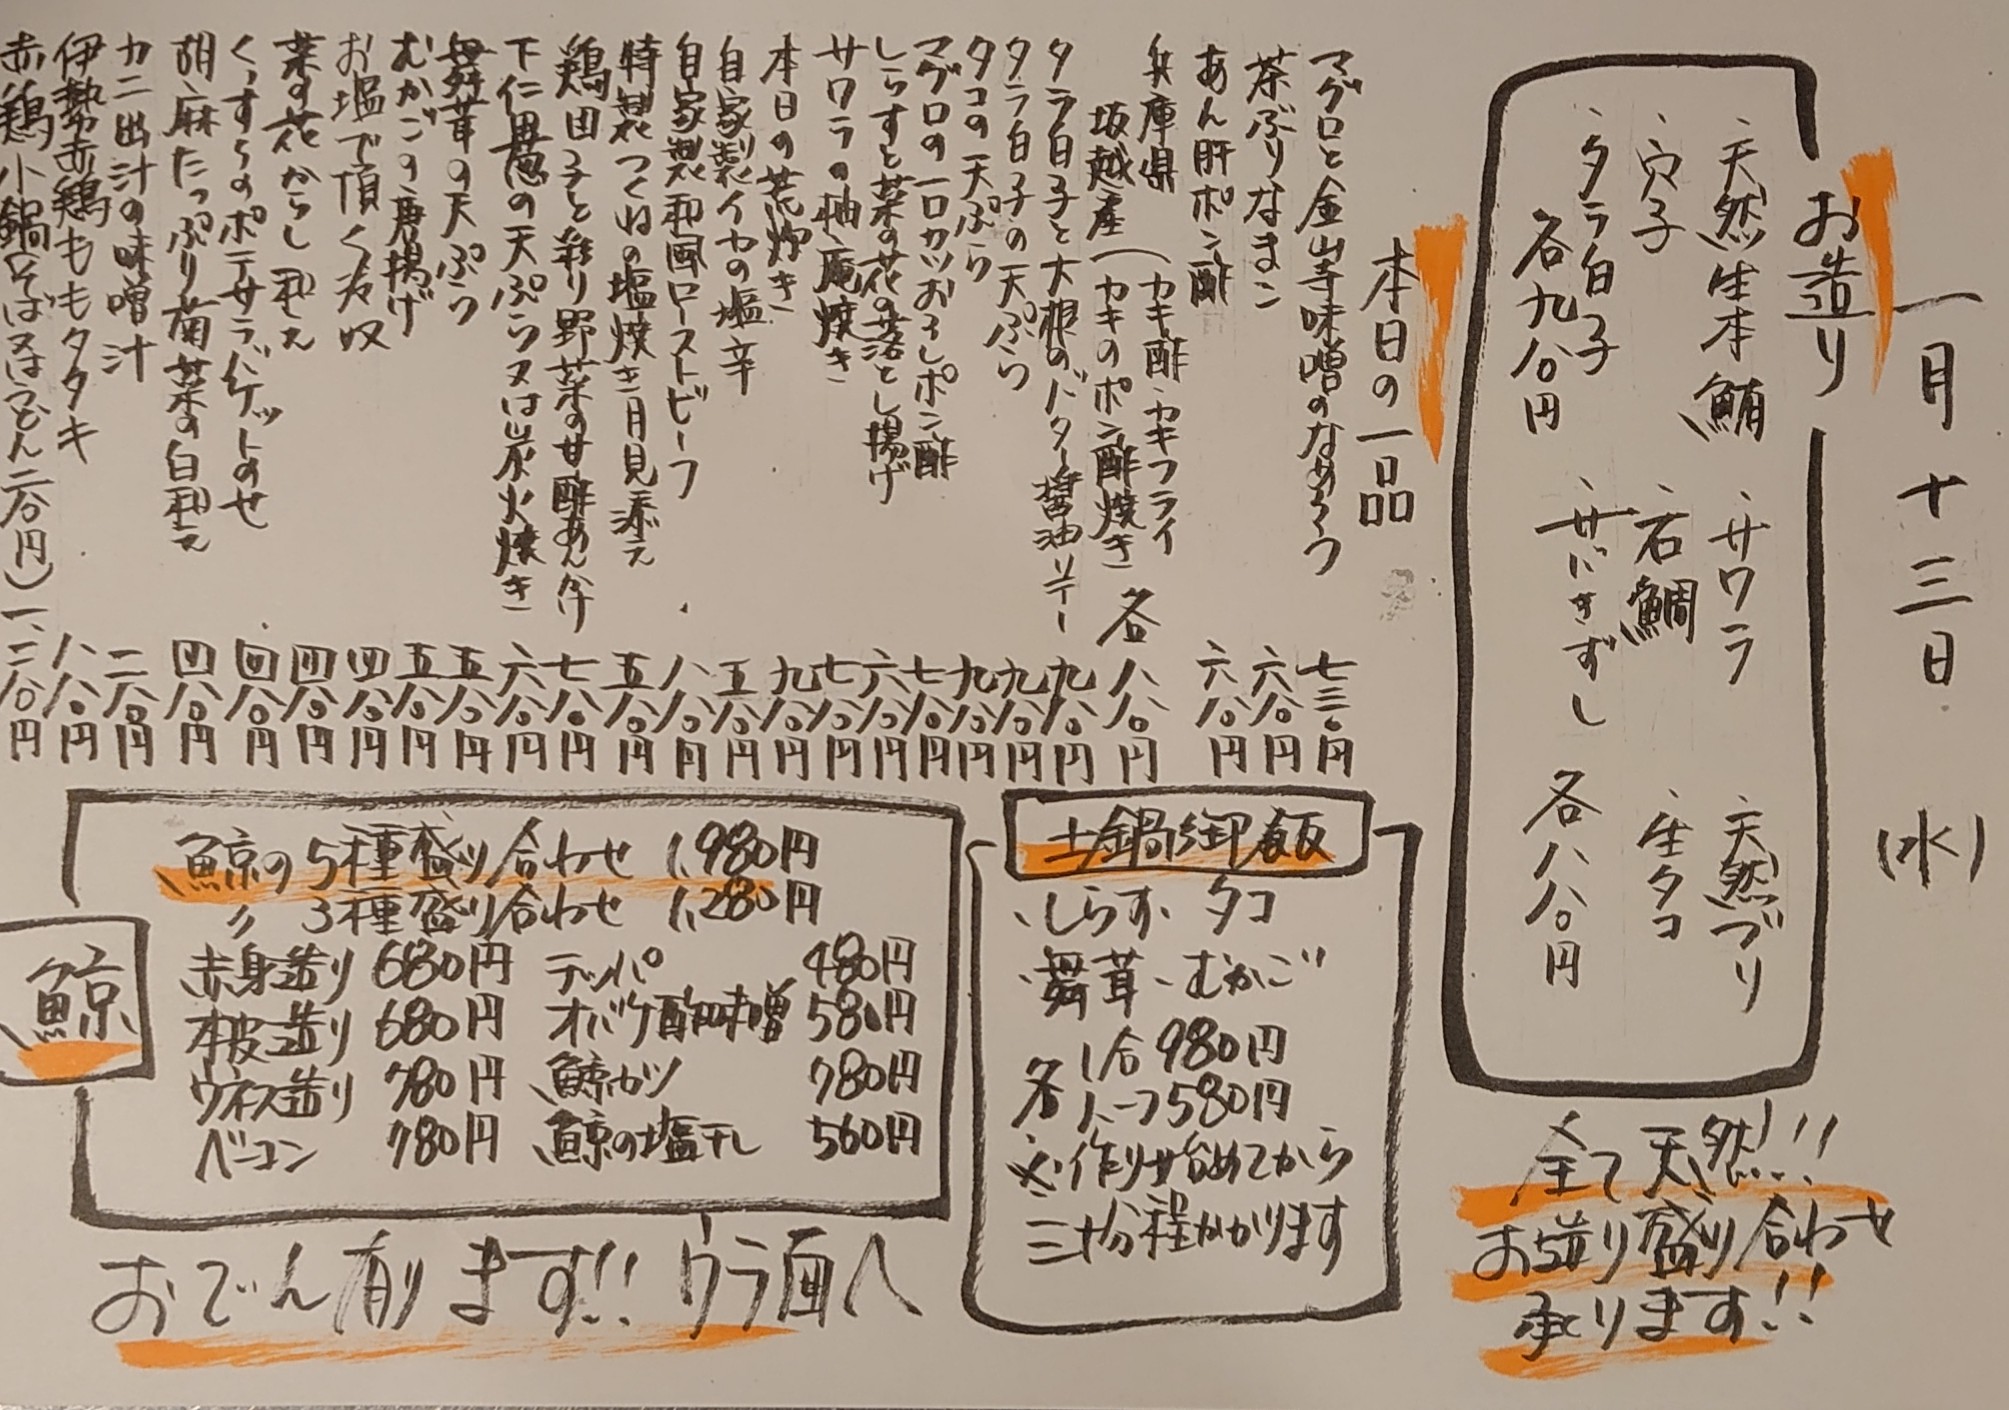 一月十三日(水)
お造り
・天然生本鮪 ・サワラ ・天然ブリ
・穴子 ・石鯛 ・生タコ
・タラ白子 ・サバきずし
各九八〇円 各八八〇円
全て天然!!
お造り盛り合わせ
承ります!!
本日の一品
マグロと金山寺味噌のなめろう 七三〇円
茶ぶりなまこ 六八〇円
あん肝ポン酢 六八〇円
兵庫県
坂越産
(カキ酢・カキフライ
(カキのポン酢焼き 各八八〇円
タラ白子と大根のバター醤油ソテー 九八〇円
タラ白子の天ぷら 九八〇円
タコの天ぷら 九八〇円
マグロの一口カツおろしポン酢 七八〇円
しらすと菜の花の落とし揚げ 六八〇円
サワラの柚庵焼き 七八〇円
本日の荒炊き 九八〇円
自家製イカの塩辛 五八〇円
自家製和風ローストビーフ 八八〇円
特製つくねの塩焼き月見添え 五八〇円
鶏団子と彩り野菜の甘酢あんかけ 七八〇円
下仁田葱の天ぷら又は炭火焼き 六八〇円
舞茸の天ぷら 五八〇円
むかごの唐揚げ 五八〇円
お塩で頂く冷奴 四八〇円
菜の花からし和え 四八〇円
くずしのポテサラバゲットのせ 四八〇円
胡麻たっぷり菊菜の白和え 四八〇円
カニ出汁の味噌汁 二八〇円
伊勢赤鶏ももタタキ 八八〇円
赤鶏小鍋(そば又はうどん二八〇円) 一、二八〇円
土鍋御飯
・しらす・タコ
・舞茸・むかご
各 1合980円
ハーフ580円
※作り始めてから
三十分程かかります
鯨
鯨の5種盛り合わせ 1,980円
〃 3種盛り合わせ 1,280円
赤身造り 680円 テッパ 480円
本皮造り 680円 オバケ酢味噌 580円
ウネス造り 780円 鯨カツ 780円
ベーコン 780円 鯨の塩干し 560円
おでん有ります!!ウラ面へ